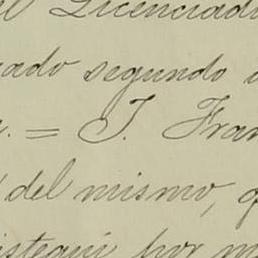 el Licenciado
cado segundo
. = J. Fran
del mismo, q
istegui por m